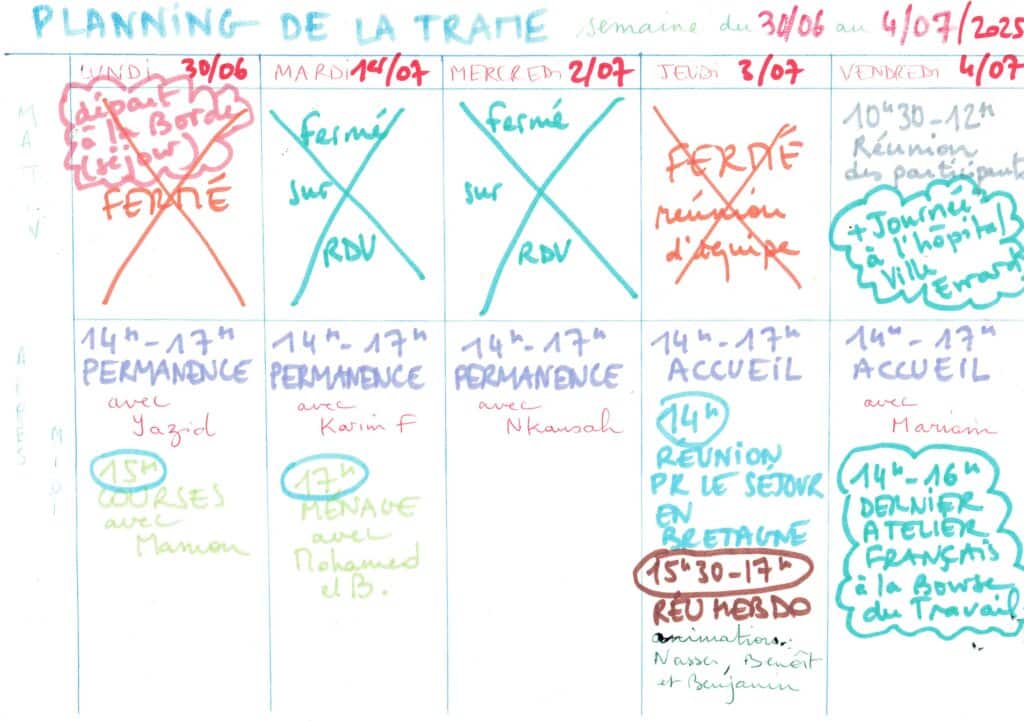 PLANNING DE LA TRAME semaine du 30/06 au 4/07/2025
LUNDI 30/06
MARDI 1er/07
MERCREDI 2/07
JEUDI 3/07
VENDREDI 4/07
MATIN
départ
à la Borde
(séjour)
FERMÉ
fermé
sur
RDV
fermé
sur
RDV
FERMÉ
réunion
d'équipe
10h30-12h
Réunion
des participants
+ Journée
à l'hôpital
Ville
Evrard
APRES
MIDI
14h-17h
PERMANENCE
avec
Yazid
15h
COURSES
avec
Mamou
14h-17h
PERMANENCE
avec
Karim F
17h
MÉNAGE
avec
Mohamed
et B.
14h-17h
PERMANENCE
avec
Nkansah
14h-17h
ACCUEIL
14h
RÉUNION
PR LE SÉJOUR
EN
BRETAGNE
15h30-17h
RÉU HEBDO
animation:
Nasser, Benoît
et Benjamin
14h-17h
ACCUEIL
avec
Mariam
14h-16h
DERNIER
ATELIER
FRANÇAIS
à la Bourse
du Travail